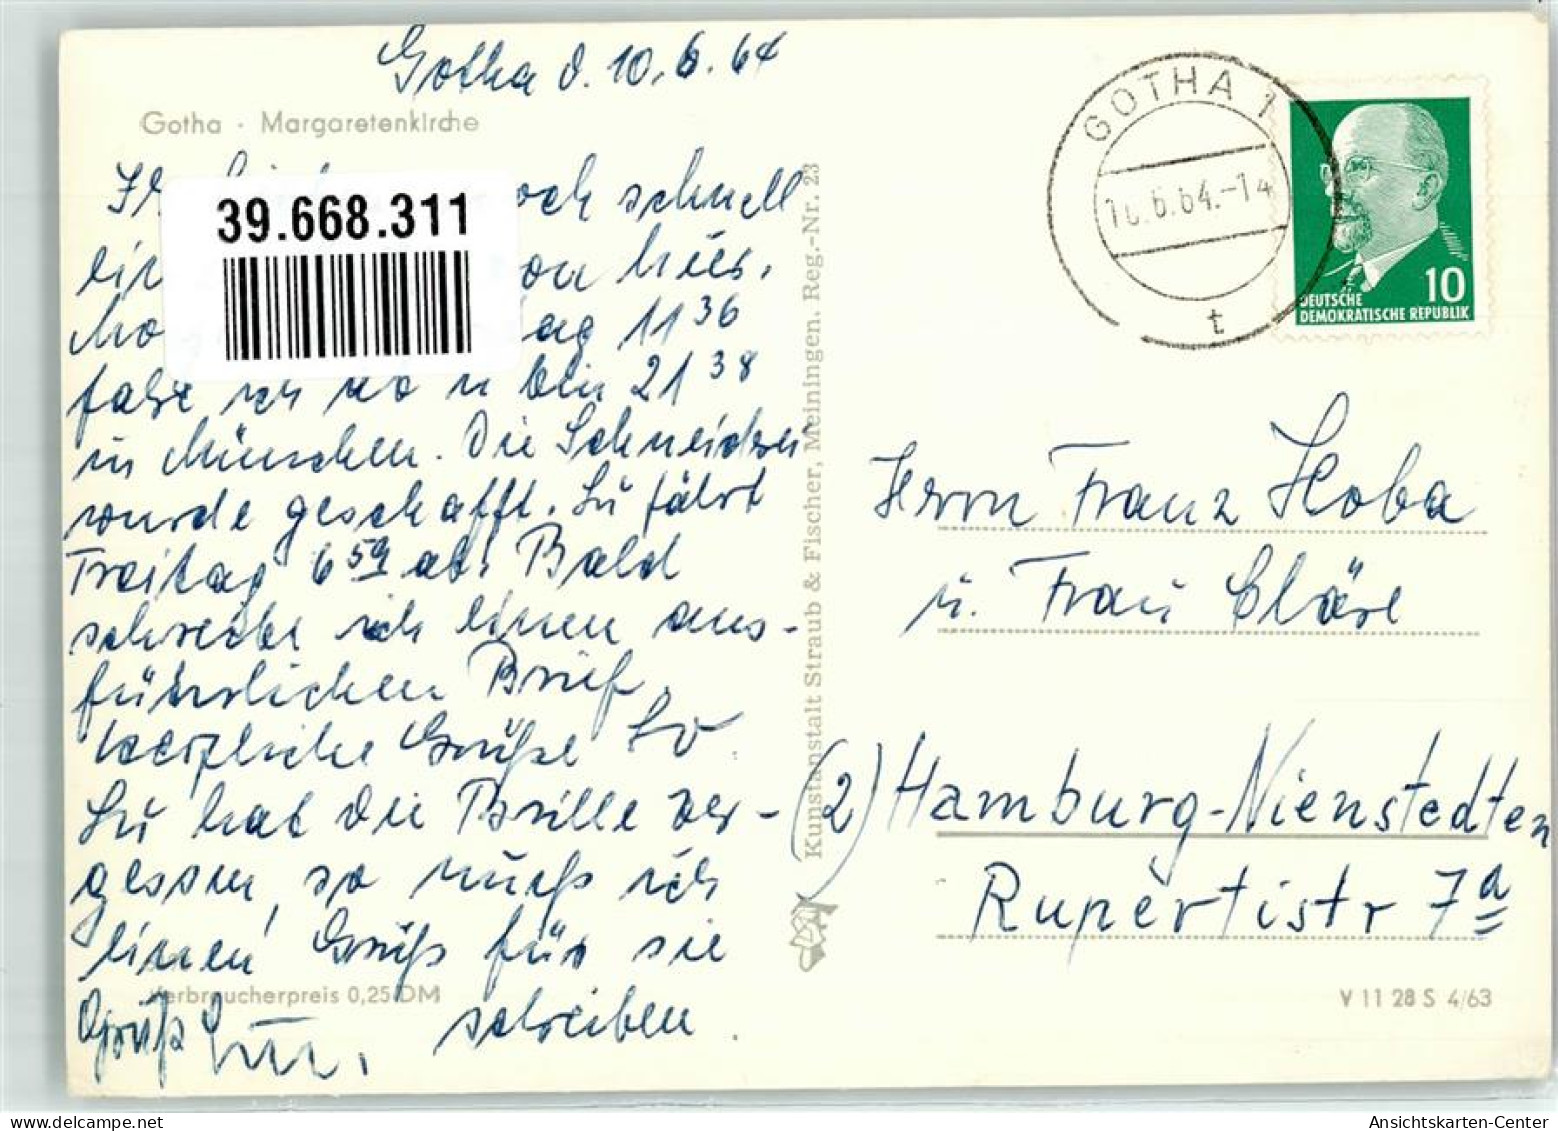 Gotha d. 10.6.64
Gotha · Margaretenkirche
39.668.311
och schnell
hier.
ag 11 36
ich ab u bin 21 38
in München. Die Schneiderei
wurde geschafft. Lu fährt
Freitag 6 59 ab. Bald
schreibe ich einen aus-
führlichen Brief.
Herzliche Grüße
Lu hat die Brille ver-
gessen, so muß ich
einen Gruß für sie
schreiben.
Gruß Lu.
Verbraucherpreis 0,25 DM
Kunstanstalt Straub & Fischer, Meiningen. Reg.-Nr. 23
GOTHA 1
.6.64.-14
t
10
DEUTSCHE
DEMOKRATISCHE REPUBLIK
Herrn Franz Hoba
u. Frau Cläre
(2) Hamburg-Nienstedten
Rupertistr 7a
V 11 28 S 4/63
Ansichtskarten-Center